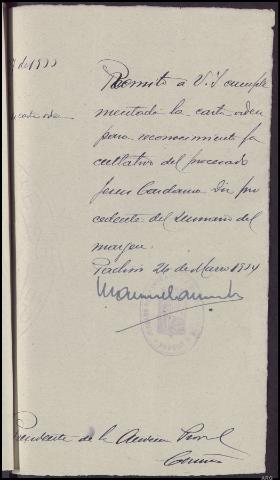 de 1933
Remito a V.I. cumpli
mentada la carta orden
para reconocimiento fa
cultativo del procesado
Jesus Cardama Di pro
cedente del sumario del
margen.
Padron 24 de Marzo 1934
Presidente de la Audiencia Provl
Coruña